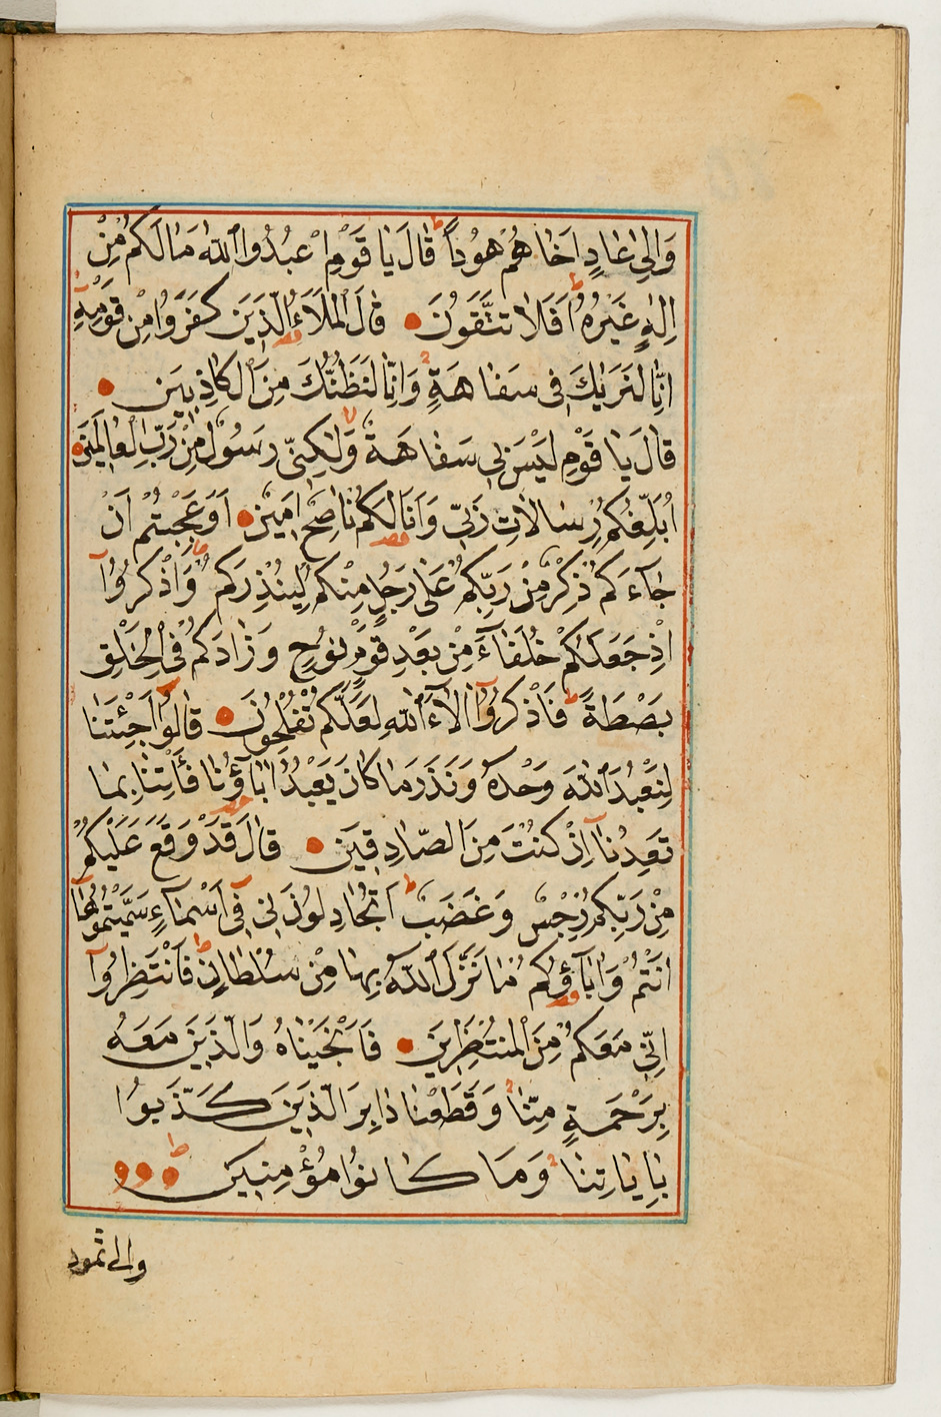 وَاِلٰى عَادٍ اَخَاهُمْ هُودًا قَالَ يَا قَوْمِ اعْبُدُوا اللهَ مَالَكُمْ مِنْ
اِلٰهٍ غَيْرُهُ اَفَلَا تَتَّقُونَ قَالَ الْمَلَاُ الَّذِينَ كَفَرُوا مِنْ قَوْمِهِ
اِنَّا لَنَرٰيكَ فِى سَفَاهَةٍ وَاِنَّا لَنَظُنُّكَ مِنَ الْكَاذِبِينَ
قَالَ يَا قَوْمِ لَيْسَ بِى سَفَاهَةٌ وَلٰكِنِّى رَسُولٌ مِنْ رَبِّ الْعَالَمِينَ
اُبَلِّغُكُمْ رِسَالَاتِ رَبِّى وَاَنَا لَكُمْ نَاصِحٌ اَمِينٌ اَوَعَجِبْتُمْ اَنْ
جَآءَكُمْ ذِكْرٌ مِنْ رَبِّكُمْ عَلٰى رَجُلٍ مِنْكُمْ لِيُنْذِرَكُمْ وَاذْكُرُوا
اِذْ جَعَلَكُمْ خُلَفَآءَ مِنْ بَعْدِ قَوْمِ نُوحٍ وَزَادَكُمْ فِى الْخَلْقِ
بَصْطَةً فَاذْكُرُوا اٰلَآءَ اللهِ لَعَلَّكُمْ تُفْلِحُونَ قَالُوا اَجِئْتَنَا
لِنَعْبُدَ اللهَ وَحْدَهُ وَنَذَرَ مَا كَانَ يَعْبُدُ اٰبَآؤُنَا فَأْتِنَا بِمَا
تَعِدُنَا اِنْ كُنْتَ مِنَ الصَّادِقِينَ قَالَ قَدْ وَقَعَ عَلَيْكُمْ
مِنْ رَبِّكُمْ رِجْسٌ وَغَضَبٌ اَتُجَادِلُونَنِى فِى اَسْمَآءٍ سَمَّيْتُمُوهَا
اَنْتُمْ وَاٰبَآؤُكُمْ مَا نَزَّلَ اللهُ بِهَا مِنْ سُلْطَانٍ فَانْتَظِرُوا
اِنِّى مَعَكُمْ مِنَ الْمُنْتَظِرِينَ فَاَنْجَيْنَاهُ وَالَّذِينَ مَعَهُ
بِرَحْمَةٍ مِنَّا وَقَطَعْنَا دَابِرَ الَّذِينَ كَذَّبُوا
بِاٰيَاتِنَا وَمَا كَانُوا مُؤْمِنِينَ
والى ثمود